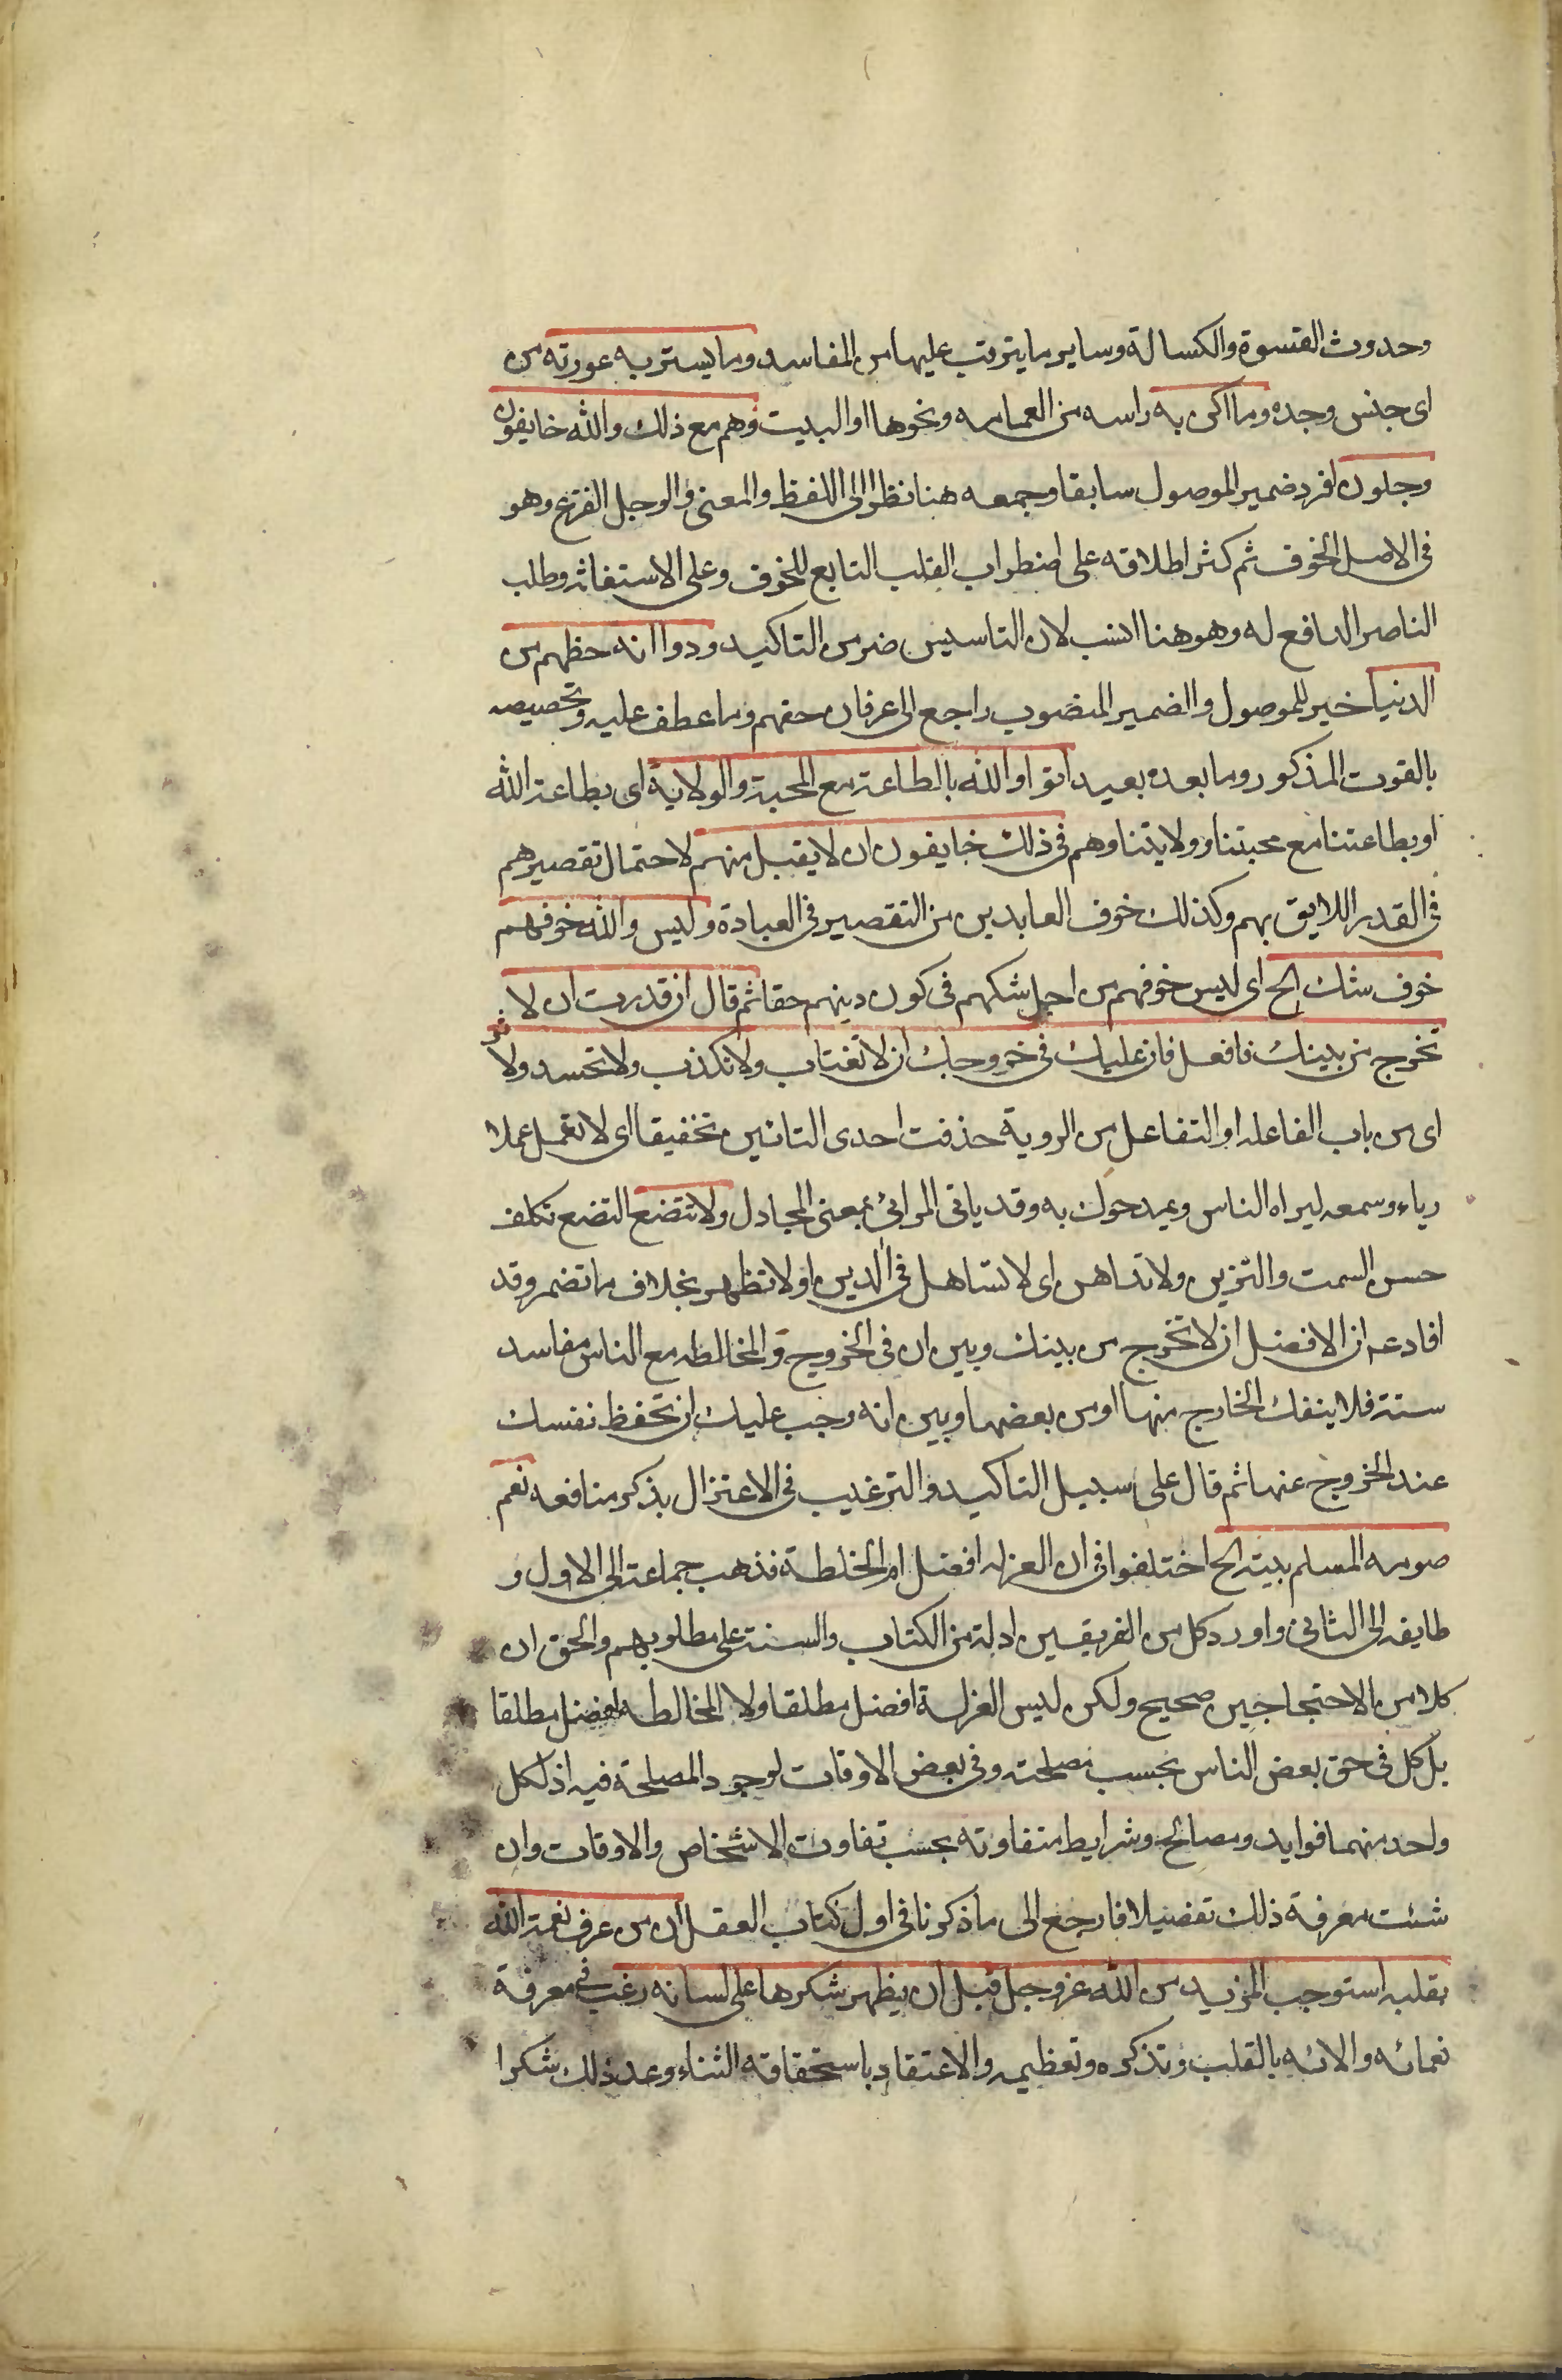 وحدوث القسوة والكسالة وساير ما يترتب عليها من المفاسد وما يستر به عورته من
اى جنس وجده وما اكن به راسه من العمامه ونحوها او البيت وهم مع ذلك والله خايفون
وجلون افرد ضمير الموصول سابقا وجمعه هنا نظرا الى اللفظ والمعنى والوجل الفزع وهو
فى الاصل الخوف ثم كثر اطلاقه على اضطراب القلب التابع للخوف وعلى الاستغاثه وطلب
الناصر الدافع له وهو هنا انسب لان التاسيس خير من التاكيد ودوا انه حظهم من
الدنيا خبر للموصول والضمير المنصوب راجع الى عرفان حقهم وما عطف عليه وتخصيصه
بالقوت المذكور وما بعده بعيد اتوا والله بالطاعة مع المحبة والولاية اى بطاعة الله
او بطاعتنا مع محبتنا وولايتنا وهم فى ذلك خايفون ان لا يقبل منهم لاحتمال تقصيرهم
فى القدر اللايق بهم وكذلك خوف العابدين من التقصير فى العبادة وليس والله خوفهم
خوف شك الخ اى ليس خوفهم من اجل شكهم فى كون دينهم حقا ثم قال ان قدرت ان لا
تخرج من بيتك فافعل فان عليك فى خروجك ان لا تغتاب ولا تكذب ولا تحسد ولا
اى من باب المفاعله او التفاعل من الروية حذفت احدى التائين تخفيفا اى لا تعمل عملا
رياء وسمعه ليراه الناس ويمدحوك به وقد ياتى المرائى بمعنى المجادل ولا تتصنع التصنع تكلف
حسن السمت والتزين ولا تداهن اى لا تساهل فى الدين او لا تظهر بخلاف ما تضمر وقد
افاد عم ان الافضل ان لا تخرج من بيتك وبين ان فى الخروج والمخالطه مع الناس مفاسد
ستة فلا ينفك الخارج منها او من بعضها وبين انه وجب عليك ان تحفظ نفسك
عند الخروج عنها ثم قال على سبيل التاكيد والترغيب فى الاعتزال بذكر منافعه نعم
صومعه المسلم بيته الخ اختلفوا فى ان العزله افضل ام الخلطة فذهب جماعة الى الاول و
طايفه الى الثانى واورد كل من الفريقين ادلة من الكتاب والسنة على مطلوبهم والحق ان
كلا من الاحتجاجين صحيح ولكن ليس العزلة افضل مطلقا ولا المخالطه افضل مطلقا
بل كل فى حق بعض الناس بحسب مصلحته وفى بعض الاوقات لوجود المصلحة فيه اذ لكل
واحد منهما فوايد ومصالح وشرايط متفاوته بحسب تفاوت الاشخاص والاوقات وان
شئت معرفة ذلك تفصيلا فارجع الى ما ذكرنا فى اول كتاب العقل ان من عرف نعمة الله
بقلبه استوجب المزيد من الله عز وجل قبل ان يظهر شكرها على لسانه رغب فى معرفة
نعمائه والائه بالقلب وتذكره وتعظيمه والاعتقاد باستحقاقه الثناء وعد ذلك شكرا